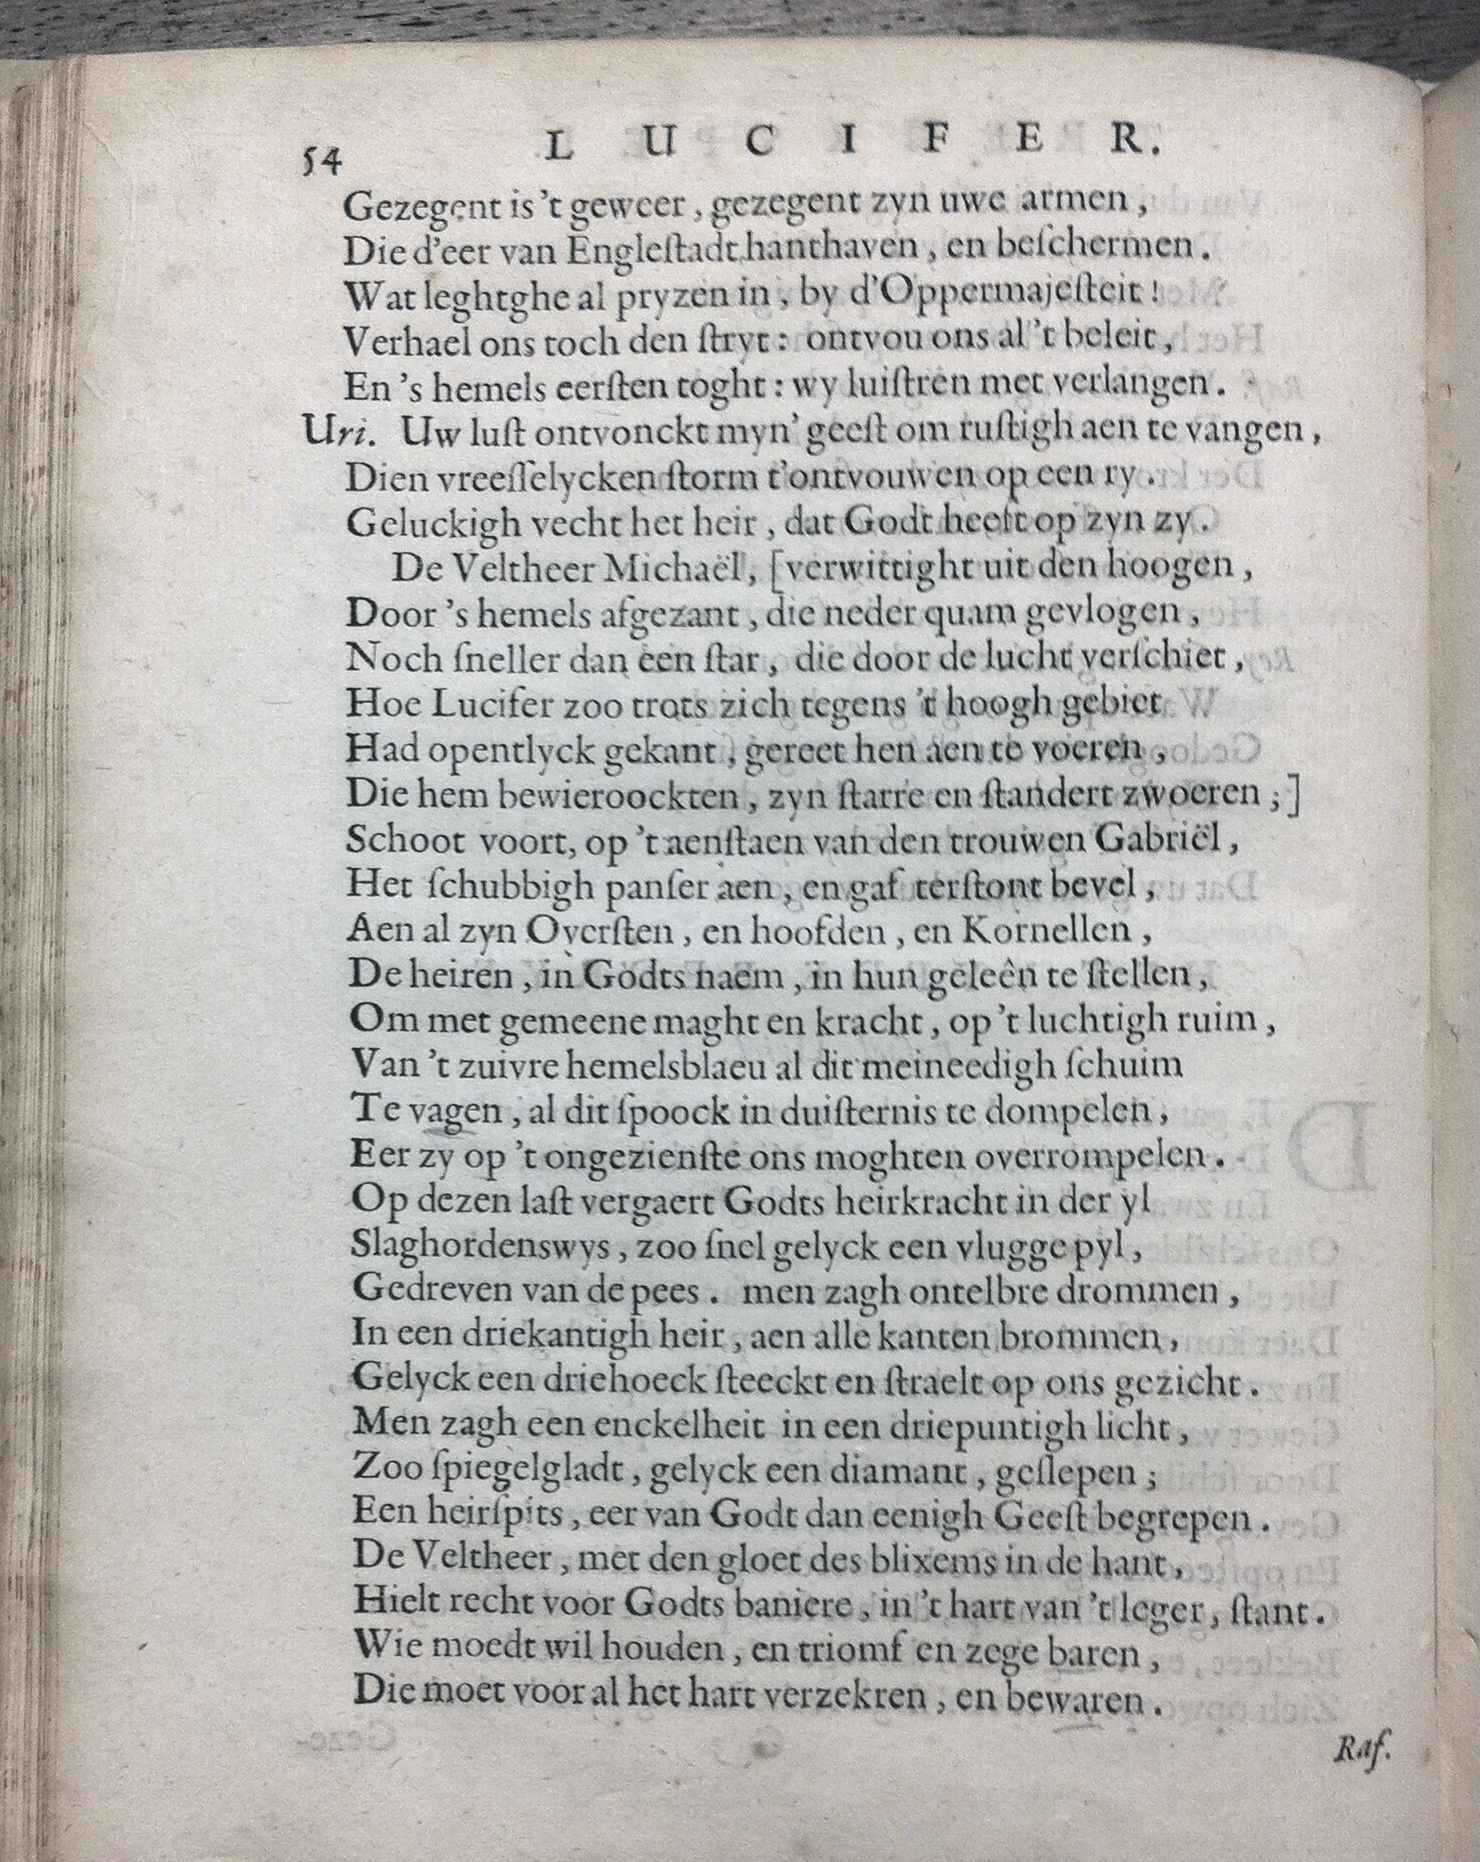 54 LUCIFER.
Gezegent is 't geweer, gezegent zyn uwe armen,
Die d'eer van Engleſtadt hanthaven, en beſchermen.
Wat leghtghe al pryzen in, by d'Oppermajeſteit!
Verhael ons toch den ſtryt: ontvou ons al 't beleit,
En 's hemels eerſten toght: wy luiſtren met verlangen.
Uri. Uw luſt ontvonckt myn' geeſt om ruſtigh aen te vangen,
Dien vreeſſelycken ſtorm t'ontvouwen op een ry.
Geluckigh vecht het heir, dat Godt heeft op zyn zy.
De Veltheer Michaël, [verwittight uit den hoogen,
Door 's hemels afgezant, die neder quam gevlogen,
Noch ſneller dan een ſtar, die door de lucht verſchiet,
Hoe Lucifer zoo trots zich tegens 't hoogh gebiet
Had opentlyck gekant, gereet hen aen te voeren,
Die hem bewieroockten, zyn ſtarre en ſtandert zwoeren;]
Schoot voort, op 't aenſtaen van den trouwen Gabriël,
Het ſchubbigh panſer aen, en gaf terſtont bevel,
Aen al zyn Overſten, en hoofden, en Kornellen,
De heiren, in Godts naem, in hun geleên te ſtellen,
Om met gemeene maght en kracht, op 't luchtigh ruim,
Van 't zuivre hemelsblaeu al dit meineedigh ſchuim
Te vagen, al dit ſpoock in duiſternis te dompelen,
Eer zy op 't ongezienſte ons moghten overrompelen.
Op dezen laſt vergaert Godts heirkracht in der yl
Slaghordenswys, zoo ſnel gelyck een vlugge pyl,
Gedreven van de pees. men zagh ontelbre drommen,
In een driekantigh heir, aen alle kanten brommen,
Gelyck een driehoeck ſteeckt en ſtraelt op ons gezicht.
Men zagh een enckelheit in een driepuntigh licht,
Zoo ſpiegelgladt, gelyck een diamant, geſlepen;
Een heirſpits, eer van Godt dan eenigh Geeſt begrepen.
De Veltheer, met den gloet des blixems in de hant,
Hielt recht voor Godts baniere, in 't hart van 't leger, ſtant.
Wie moedt wil houden, en triomf en zege baren,
Die moet voor al het hart verzekren, en bewaren.
Raf.